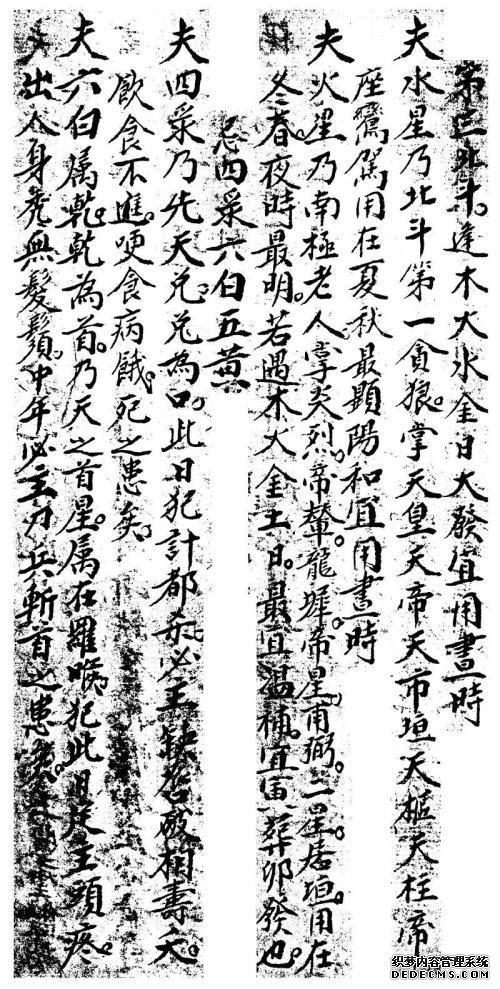 第三北斗。逢木火水金日大發宜用晝時
夫水星乃北斗第一貪狼。掌天皇天帝天市垣天樞天柱帝
座鸞駕用在夏秋最顯陽和宜用晝時
夫火星乃南極老人掌炎烈。帝輦。龍墀。帝星。甫弼。二星居垣。用在
冬春。夜時最明。若遇木火金土日。最宜溫補宜寅葬卯發也。
忌四采六白五黃
夫四采乃先天兌。兌為口。此日犯計都 必主缺唇破相壽夭。
飲食不進。哽食病餓。死之患矣。
夫六白屬乾。乾為首。乃天之首星。屬在羅㬋。犯此日足主頭疼。
出人身 無髮鬚。中年必主刀兵斬首之患矣。
织梦内容管理系统
DEDECMS.COM